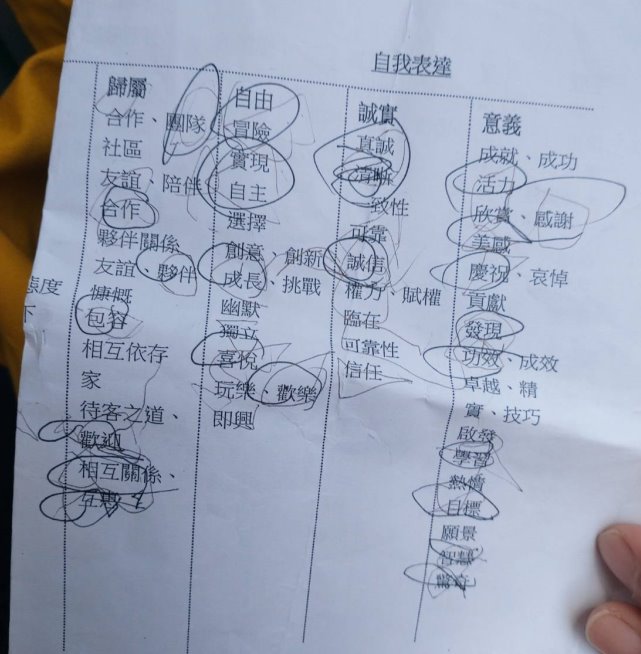 自我表達
歸屬
合作、團隊
社區
友誼、陪伴
合作
夥伴關係
友誼、夥伴
慷慨
包容
相互依存
家
待客之道、
歡迎
相互關係、
互惠
自由
冒險
實現
自主
選擇
創意、創新
成長、挑戰
幽默
獨立
喜悅
玩樂、歡樂
即興
誠實
真誠
清晰
一致性
可靠
誠信
權力、賦權
臨在
可靠性
信任
意義
成就、成功
活力
欣賞、感謝
美感
慶祝、哀悼
貢獻
發現
功效、成效
卓越、精
實、技巧
啟發
學習
熱情
目標
願景
智慧
驚奇
態度
下